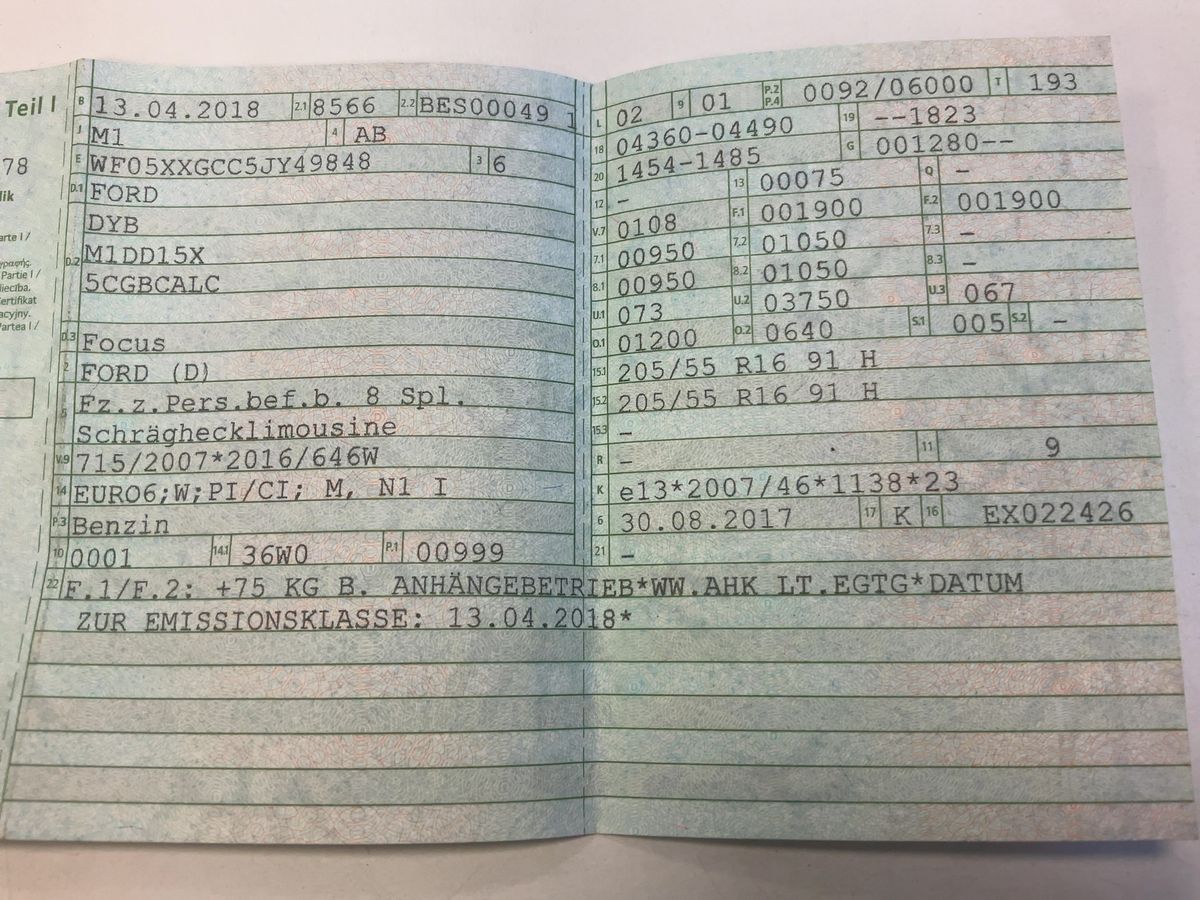 Teil I
78
lik
arte I /
Partie I /
liecība.
ertifikat
acyjny.
artea I /
B 13.04.2018 2.1 8566 2.2 BES00049 1
J M1 4 AB
E WF05XXGCC5JY49848 3 6
D.1 FORD
DYB
D.2 M1DD15X
5CGBCALC
D.3 Focus
2 FORD (D)
5 Fz.z.Pers.bef.b. 8 Spl.
Schräghecklimousine
V.9 715/2007*2016/646W
14 EURO6;W;PI/CI; M, N1 I
P.3 Benzin
10 0001 14.1 36W0 P.1 00999
L 02 9 01 P.2 P.4 0092/06000 T 193
18 04360-04490 19 --1823
20 1454-1485 G 001280--
12 – 13 00075 Q –
V.7 0108 F.1 001900 F.2 001900
7.1 00950 7.2 01050 7.3 –
8.1 00950 8.2 01050 8.3 –
U.1 073 U.2 03750 U.3 067
O.1 01200 O.2 0640 S.1 005 S.2 –
15.1 205/55 R16 91 H
15.2 205/55 R16 91 H
15.3 –
R – 11 9
K e13*2007/46*1138*23
6 30.08.2017 17 K 16 EX022426
21 –
22 F.1/F.2: +75 KG B. ANHÄNGEBETRIEB*WW.AHK LT.EGTG*DATUM
ZUR EMISSIONSKLASSE: 13.04.2018*